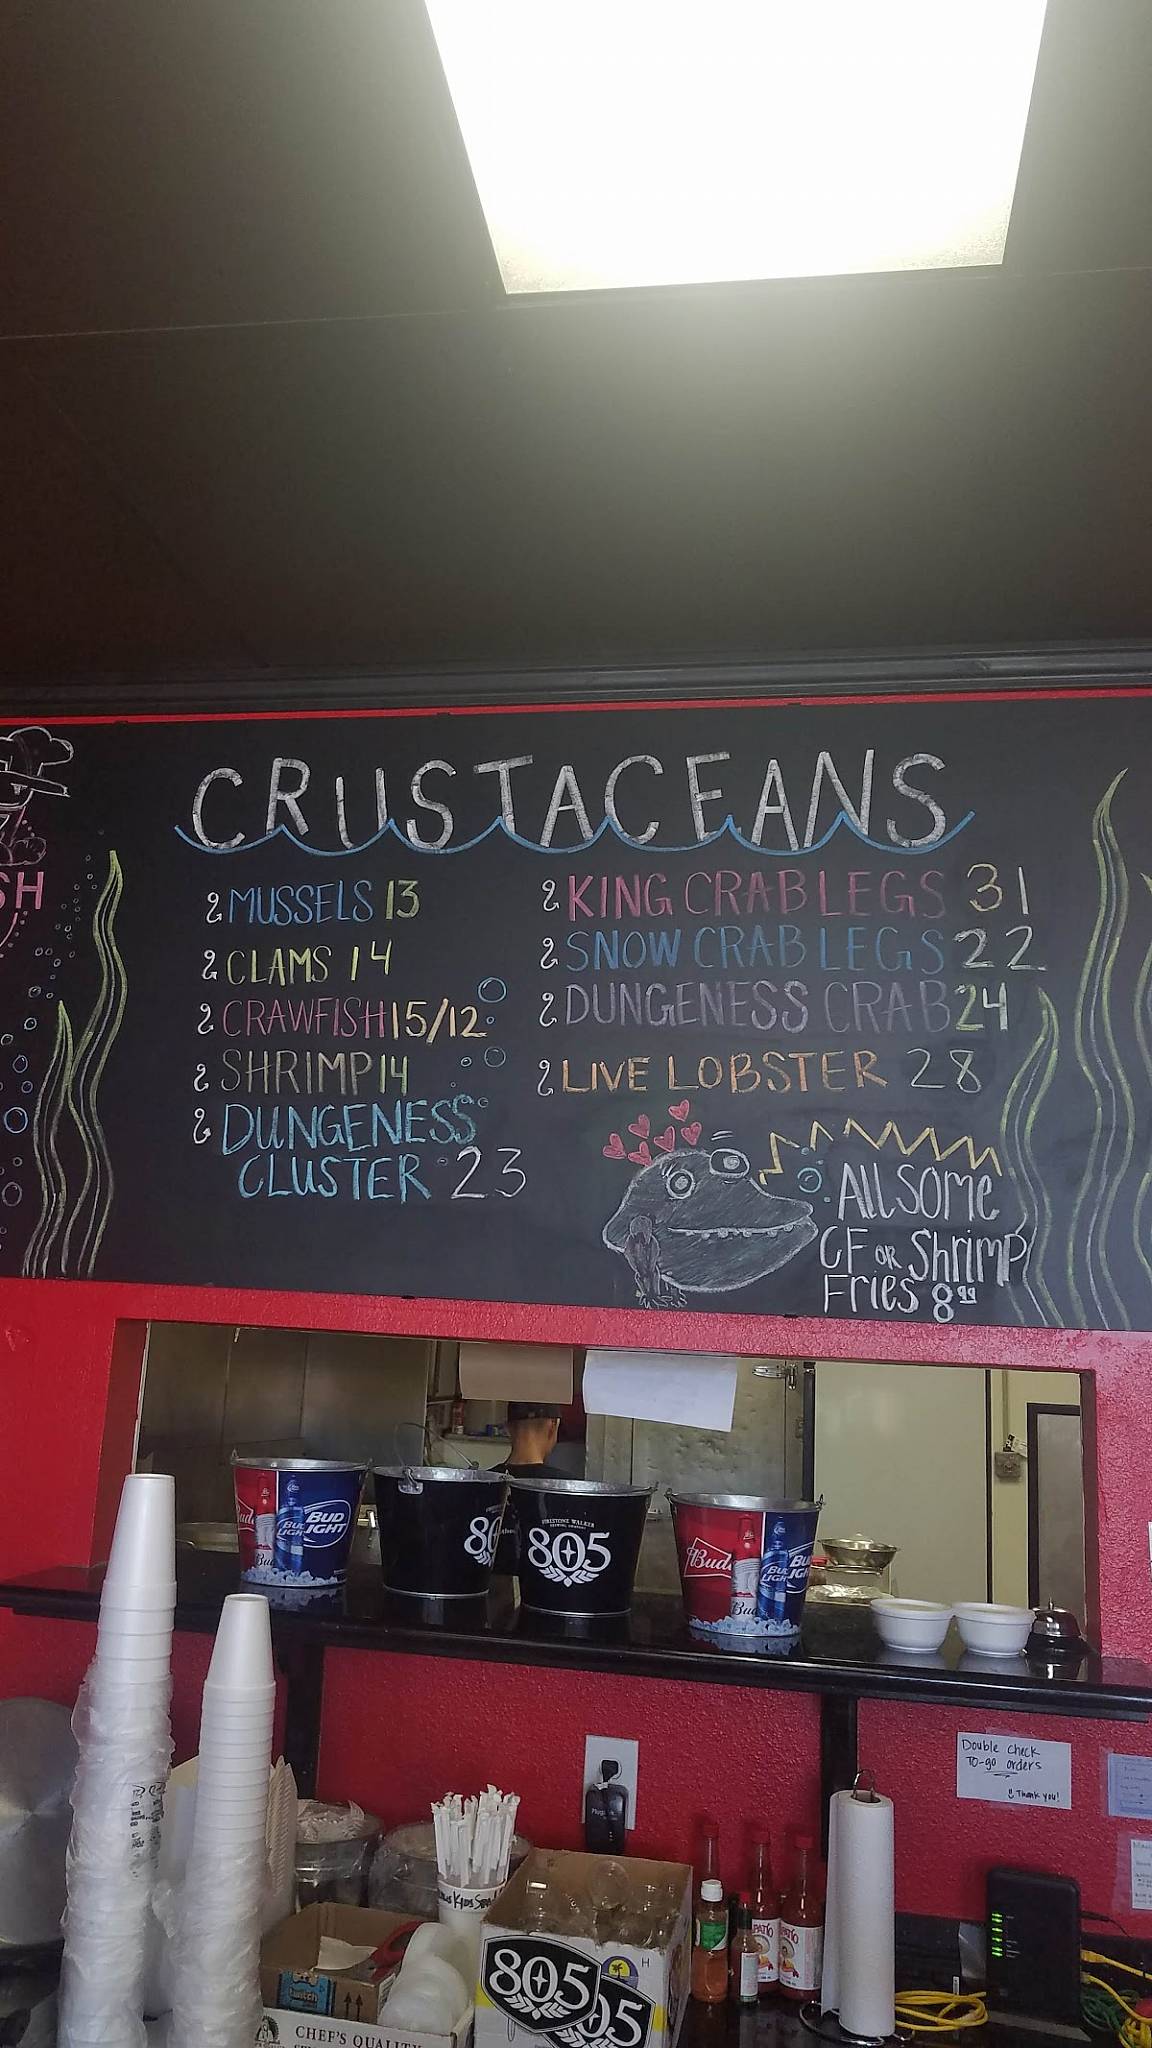 CRUSTACEANS
SH
MUSSELS 13
CLAMS 14
CRAWFISH 15/12
SHRIMP 14
DUNGENESS
CLUSTER 23
KING CRAB LEGS 31
SNOW CRAB LEGS 22
DUNGENESS CRAB 24
LIVE LOBSTER 28
All SOMe
CF OR Shrimp
Fries 8 99
BUD
LIGHT
BUD
LIGHT
Bud
80
FIRESTONE WALKER
805
Bud
BUD
LIGHT
Bud
Double check
TO-go orders
Thank you!
805
805
H
CHEF'S QUALITY